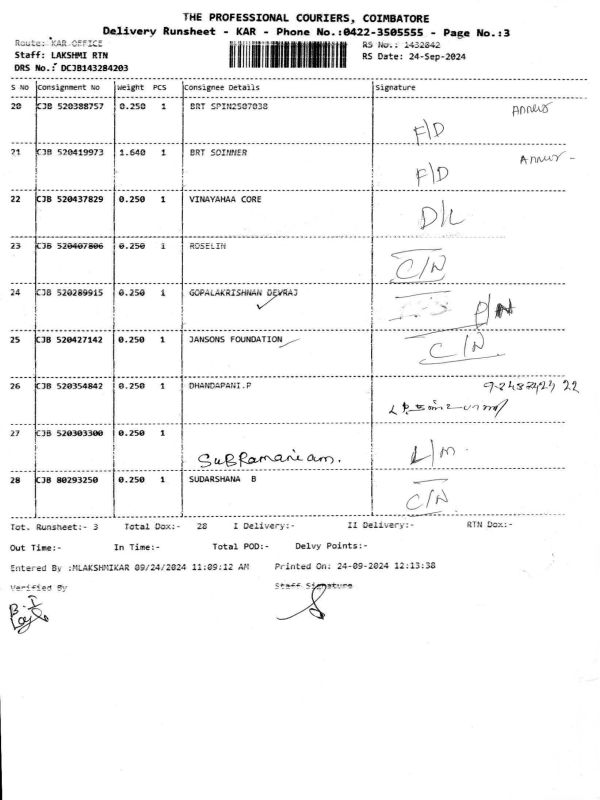 THE PROFESSIONAL COURIERS, COIMBATORE
Delivery Runsheet - KAR - Phone No.:0422-3505555 - Page No.:3
Route: KAR-OFFICE RS No.: 1432842
Staff: LAKSHMI RTN RS Date: 24-Sep-2024
DRS No.: DCJB143284203
S No Consignment No Weight PCS Consignee Details Signature
20 CJB 520388757 0.250 1 BRT SPIN2507038
F/D
21 CJB 520419973 1.640 1 BRT SOINNER
F/D
22 CJB 520437829 0.250 1 VINAYAHAA CORE
D/L
23 CJB 520407806 0.250 1 ROSELIN
C/N
24 CJB 520289915 0.250 1 GOPALAKRISHNAN DEVRAJ
25 CJB 520427142 0.250 1 JANSONS FOUNDATION
C/N
26 CJB 520354842 0.250 1 DHANDAPANI.P
27 CJB 520303300 0.250 1
SUBRamaniam. L/m.
28 CJB 80293250 0.250 1 SUDARSHANA B
C/N
Tot. Runsheet:- 3 Total Dox:- 28 I Delivery:- II Delivery:- RTN Dox:-
Out Time:- In Time:- Total POD:- Delvy Points:-
Entered By :MLAKSHMIKAR 09/24/2024 11:09:12 AM Printed On: 24-09-2024 12:13:38
Verified By Staff Signature